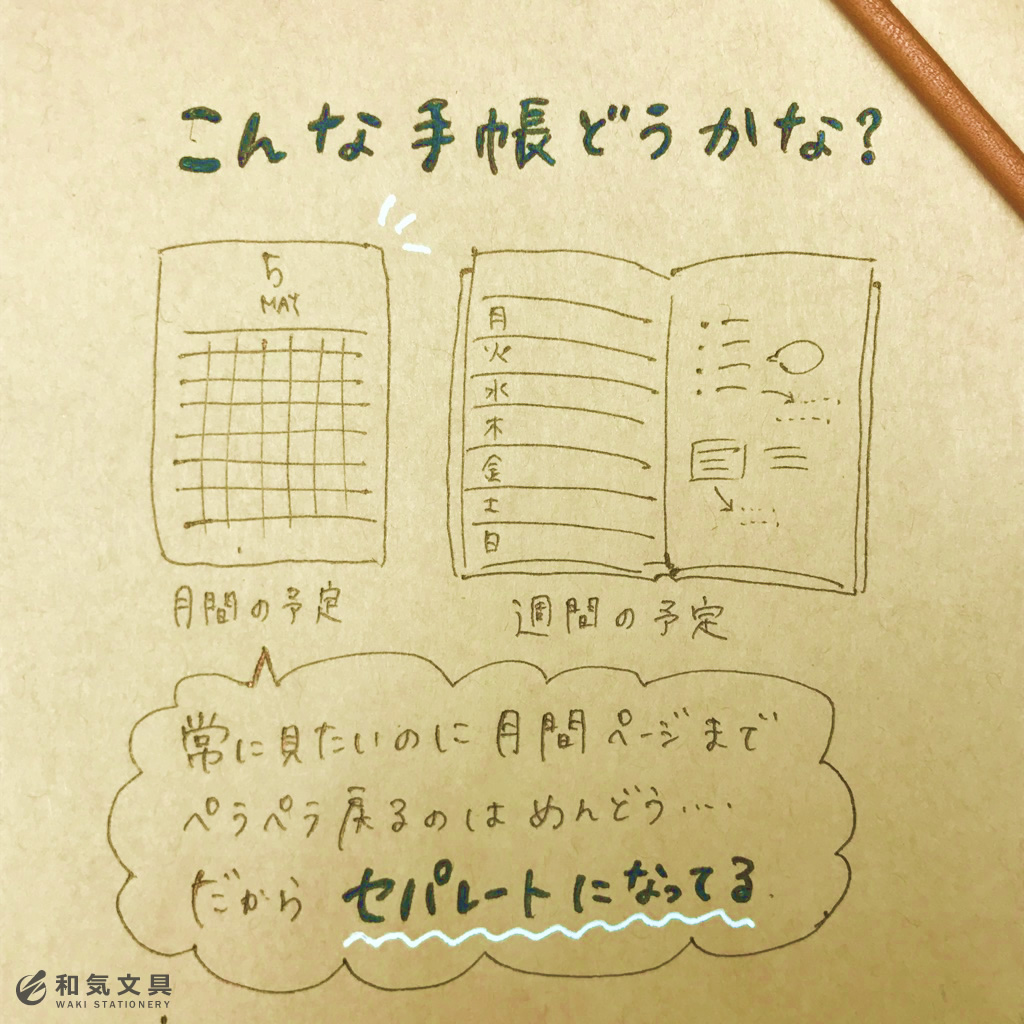 こんな手帳どうかな?
5
MAY
月
火
水
木
金
土
日
月間の予定
週間の予定
常に見たいのに月間ページまで
ペラペラ戻るのはめんどう....
だからセパレートになってる.
和気文具
WAKI STATIONERY